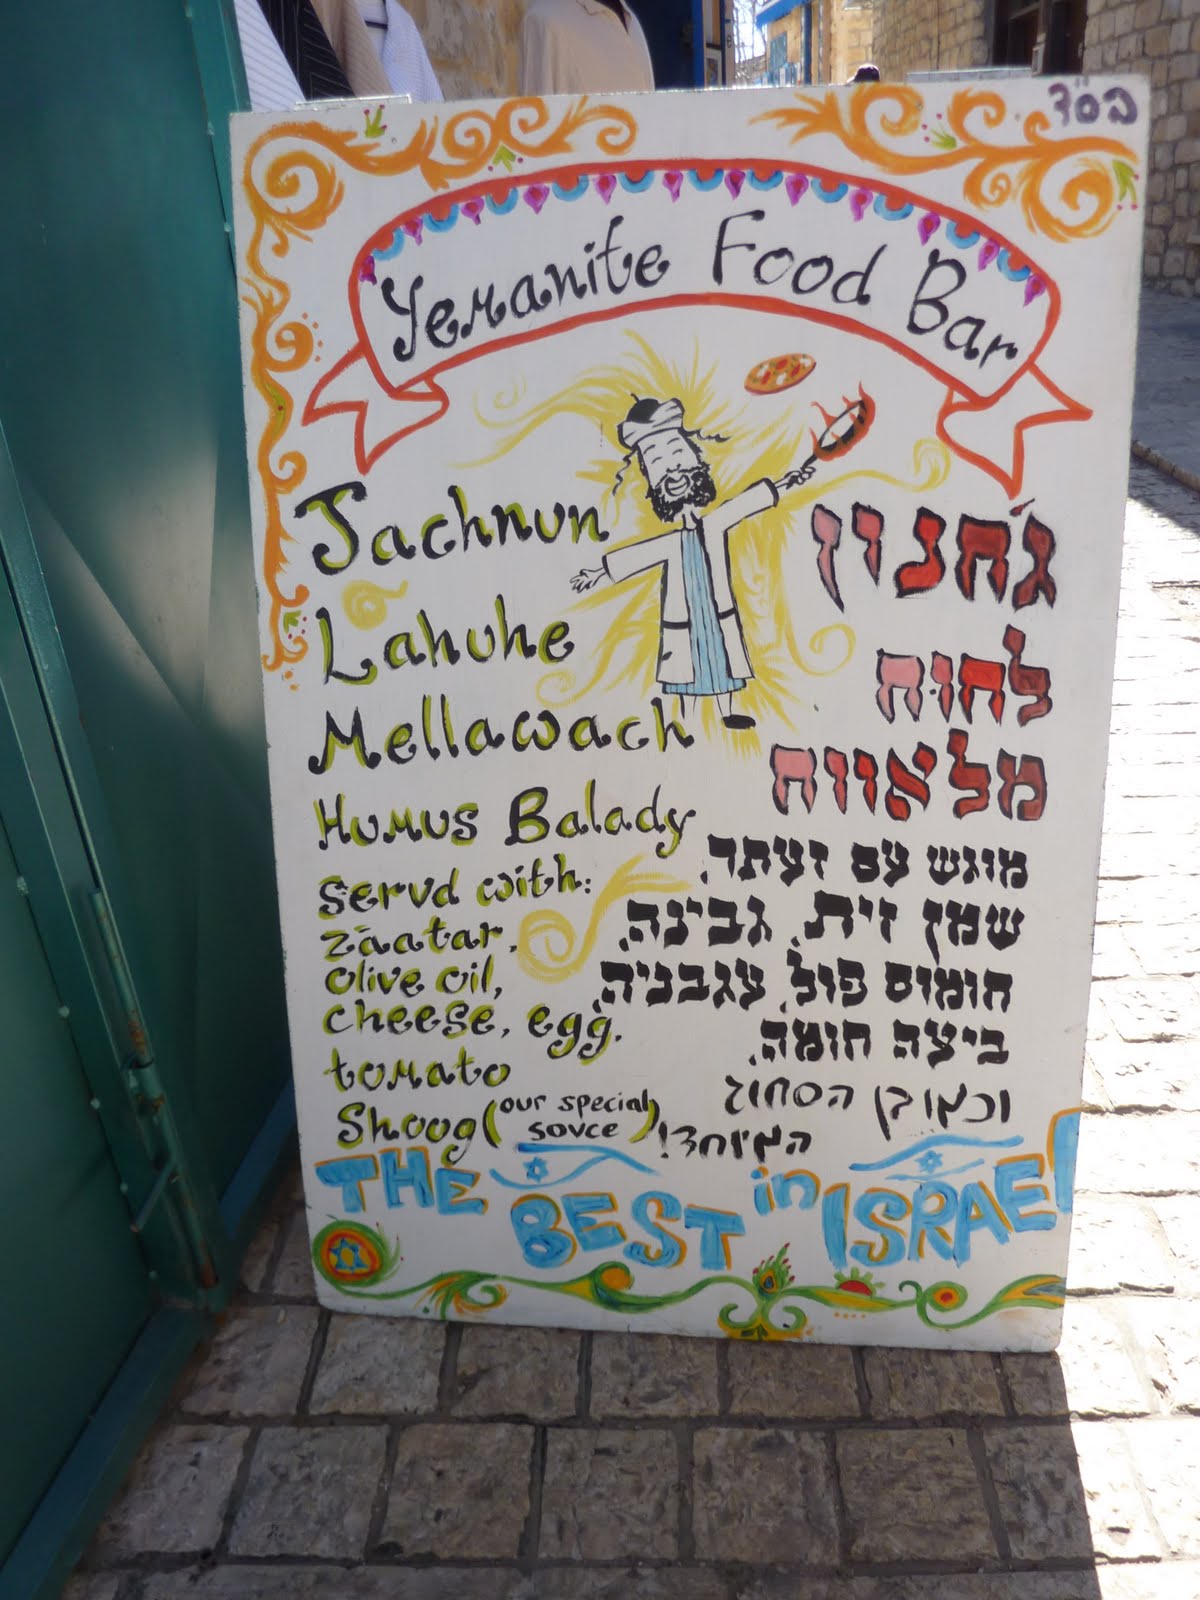 בס"ד
Yemanite Food Bar
Jachnun
Lahuhe
Mellawach
Humus Balady
servd with:
zaatar,
olive oil,
cheese, egg.
tomato
Shoog (our special
sovce)
ג'חנון
לחוח
מלאווח
מוגש עם זעתר,
שמן זית, גבינה,
חומוס פול, עגבניה,
ביצה חומה,
וכאובן הסחוג
המיוחד!
THE BEST in ISRAEL